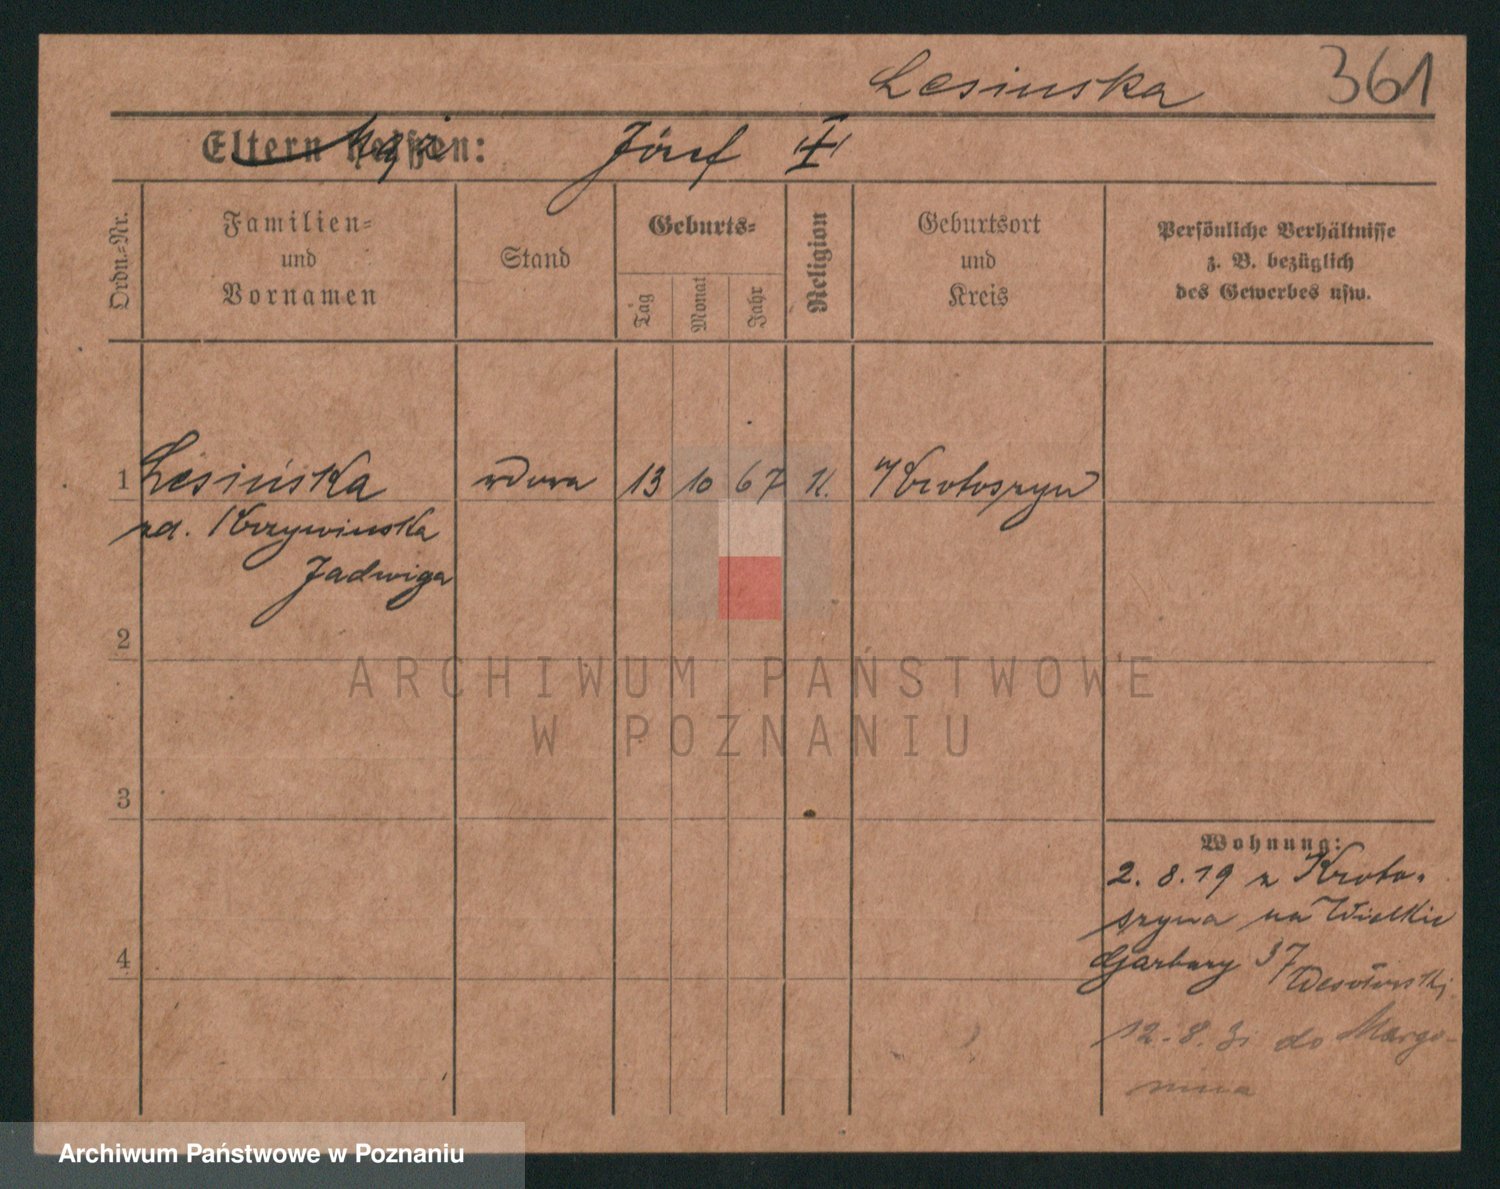 Lesinska 361
Eltern heißen: Mąż Józef
Ordn.-Nr.
Familien-
und
Vornamen
Stand
Geburts-
Tag
Monat
Jahr
Religion
Geburtsort
und
Kreis
Persönliche Verhältnisse
z. B. bezüglich
des Gewerbes usw.
1 Lesińska wdowa 13 10 67 k. Krotoszyn
zd. Krzywinska
Jadwiga
2
ARCHIWUM PAŃSTWOWE
W POZNANIU
3
Wohnung:
2. 8. 19 z Kroto-
szyna na Wielkie
4 Garbary 37
12. 8. 31 do Margo-
nina
Archiwum Państwowe w Poznaniu